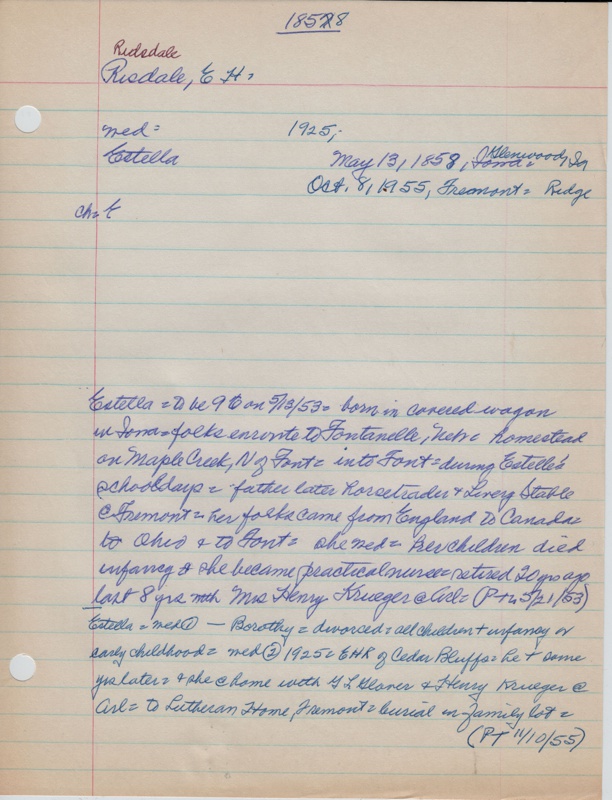 18578
Ridsdale
Risdale, E H =
med = 1925,-
Estella May 13, 1858, Iowa = Glenwood, Ia
Oct. 8, 1955, Fremont = Ridge
ch =
Estella = to be 95 on 5/13/53 = born in covered wagon
in Iowa = folks enroute to Fontanelle, Neb = homestead
on Maple Creek, N of Font = into Font = during Estella's
schooldays = father later horsetrader + Livery Stable
@ Fremont = her folks came from England to Canada =
to Ohio + to Font = she med = her children died
infancy & she became practical nurse = retired 20 yrs ago
last 8 yrs with Mrs Henry Krueger @ Arl = (P+ 5/21/53)
Estella = med ① — Borothy = divorced = all children + infancy or
early childhood = med ② 1925 = EHR of Cedar Bluffs = he + some
yrs later = + she @ home with G L Glover & Henry Krueger @
Arl = to Lutheran Home, Fremont = burial in family lot =
(PT 11/10/55)